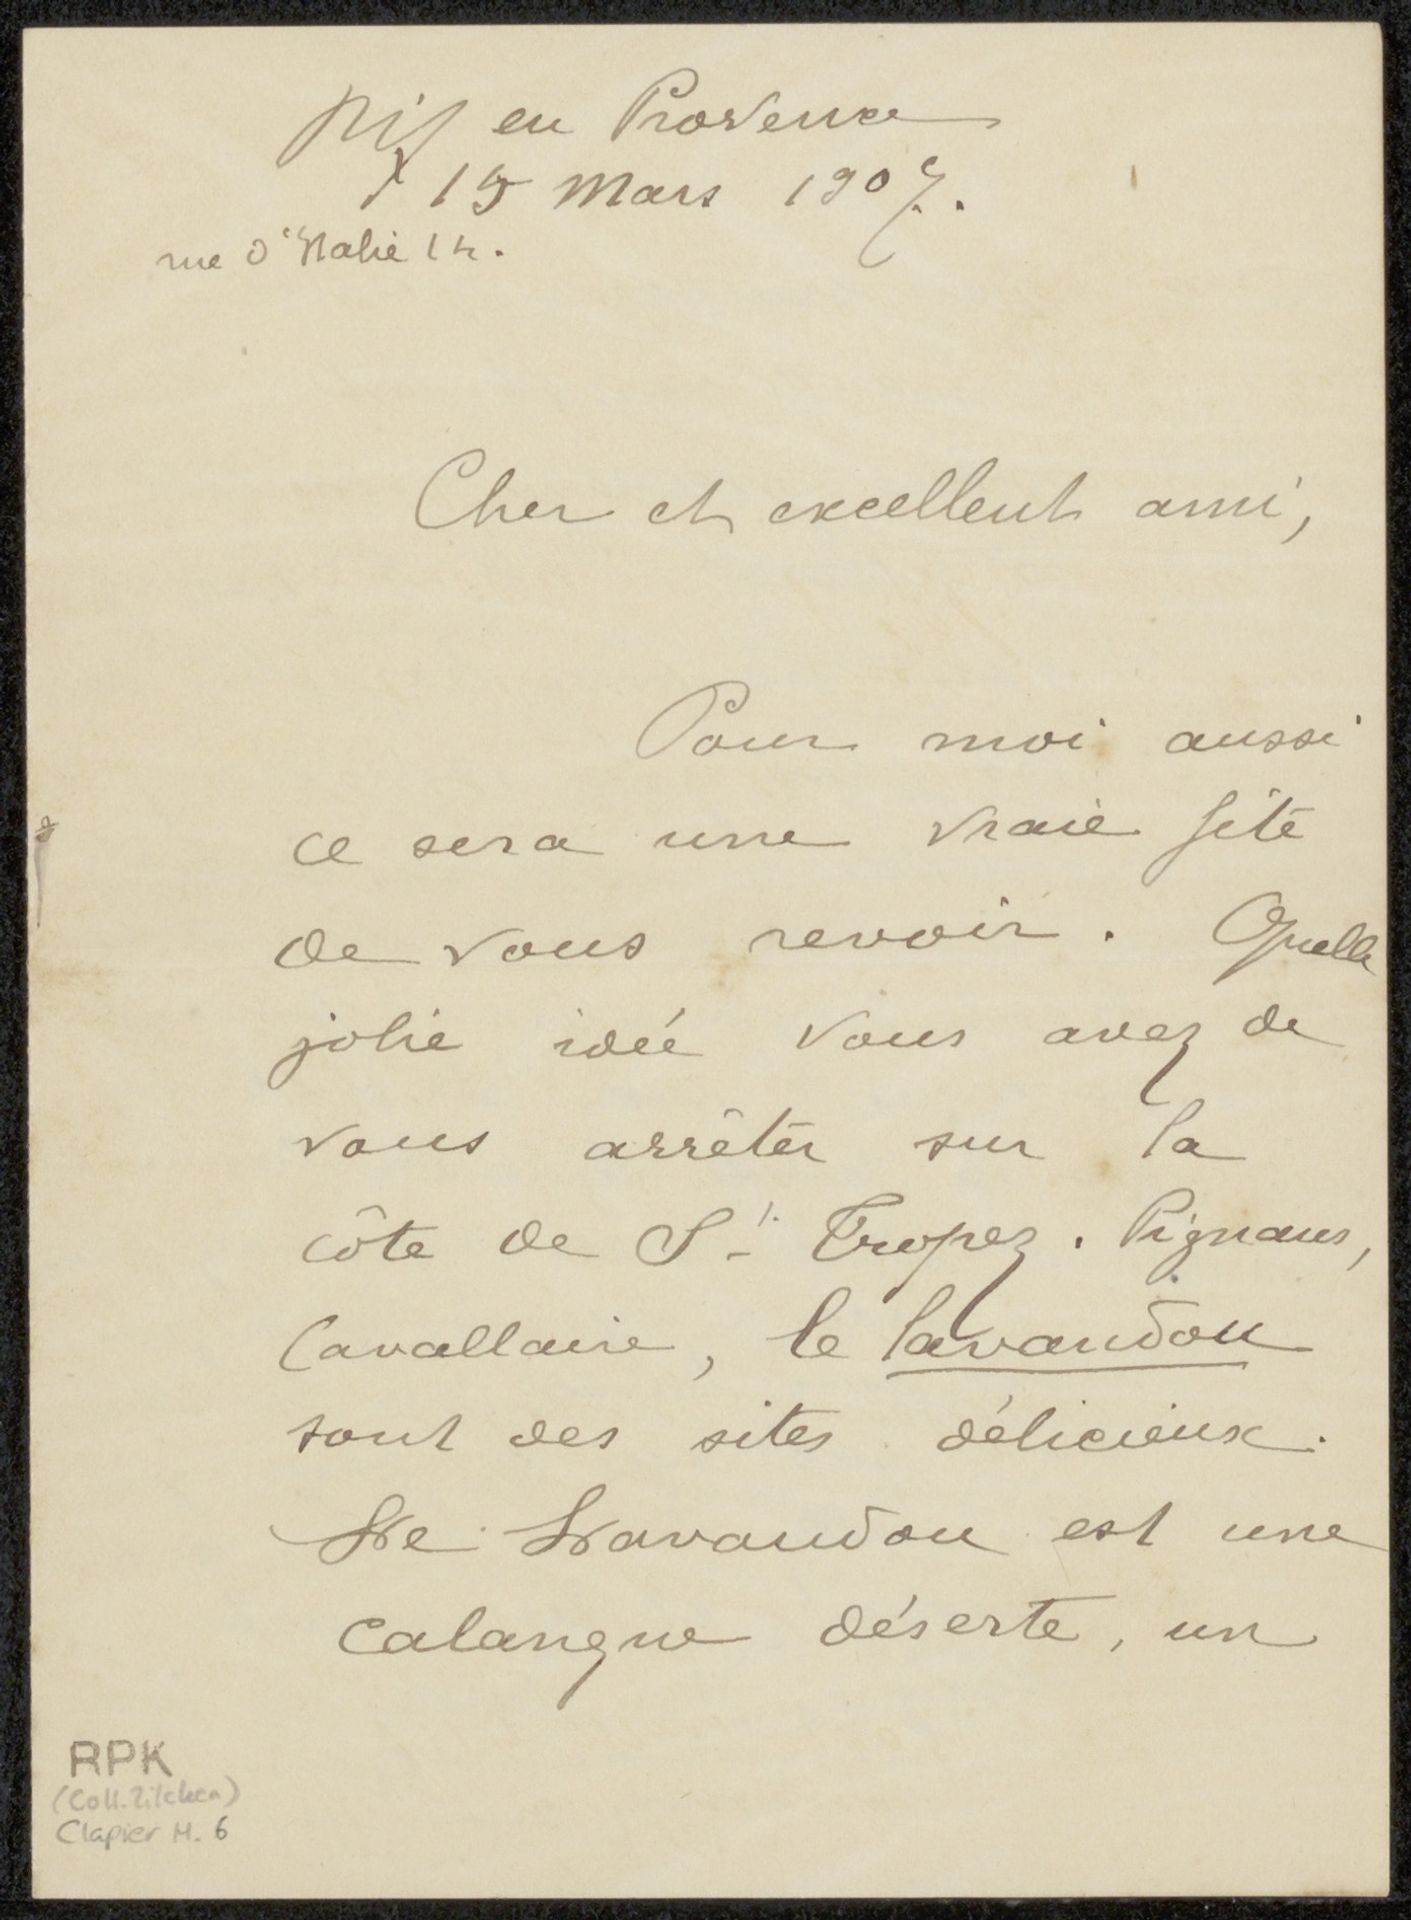 Aix en Provence
15 Mars 1907.
rue d'Italie 14.
Cher et excellent ami,
Pour moi aussi
ce sera une vraie fête
de vous revoir. Quelle
jolie idée vous avez de
vous arrêter sur la
côte de St. Tropez. Pignans,
Cavallaire, le lavandou
sont des sites délicieux.
Le Lavandou est une
calangue déserte, un
RPK
(Coll. Zilcken)
Clapier M. 6